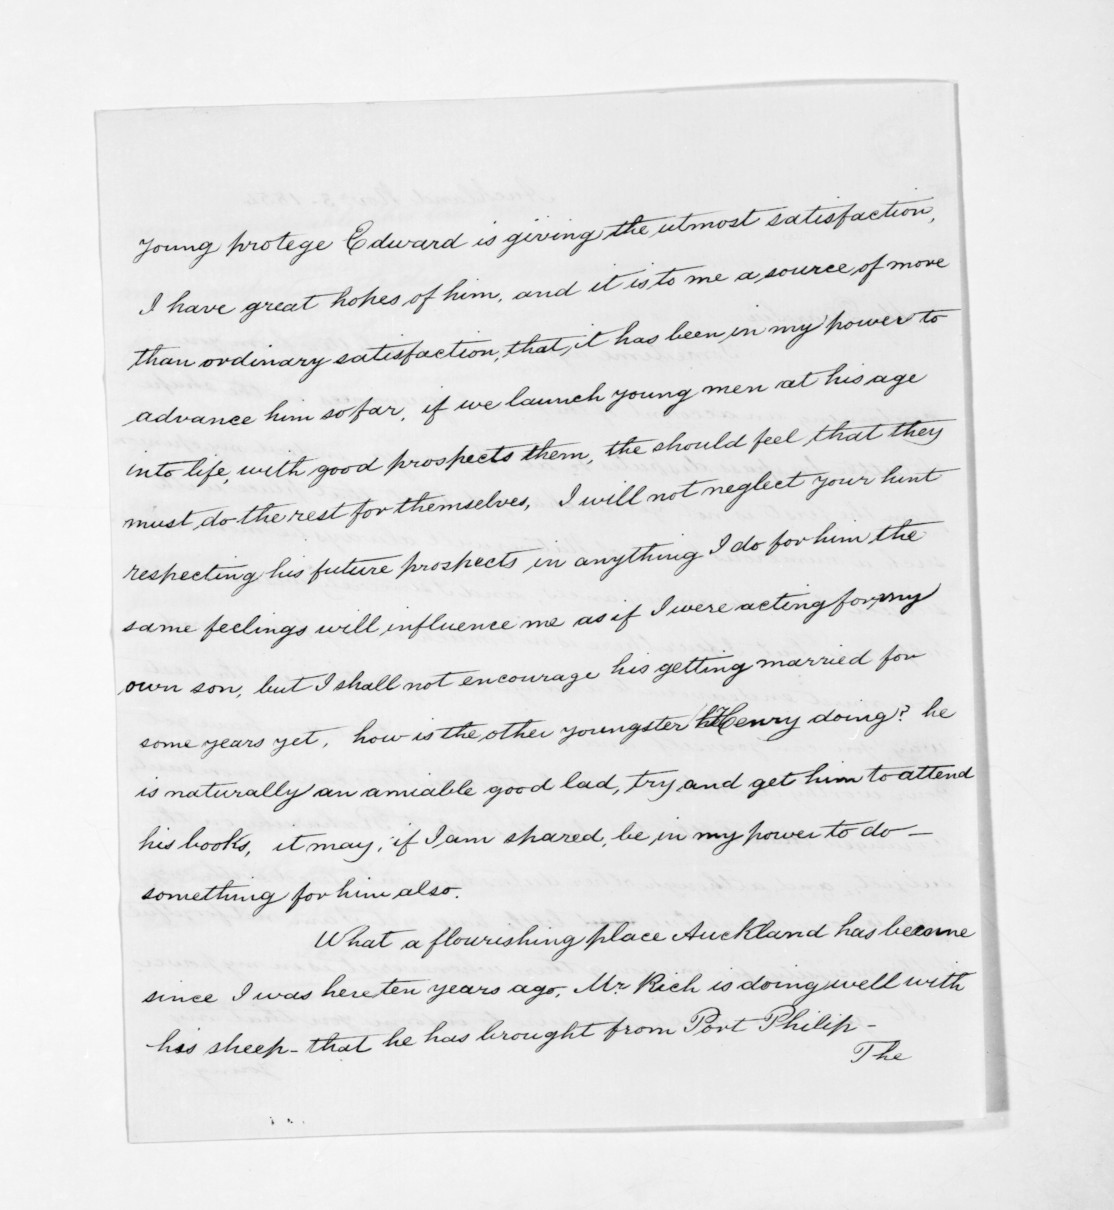 young protege Edward is giving the utmost satisfaction,
I have great hopes of him, and it is to me a source of more
than ordinary satisfaction, that it has been in my power to
advance him so far, if we launch young men at his age
into life, with good prospects them, the should feel that they
must do the rest for themselves, I will not neglect your hint
respecting his future prospects in anything I do for him the
same feelings will influence me as if I were acting for my
own son, but I shall not encourage his getting married for
some years yet, how is the other youngster Henry doing? he
is naturally an amiable good lad, try and get him to attend
his books, it may, if I am spared, be in my power to do —
something for him also.
What a flourishing place Auckland has become
since I was here ten years ago, Mr. Rich is doing well with
his sheep - that he has brought from Port Philip -
The